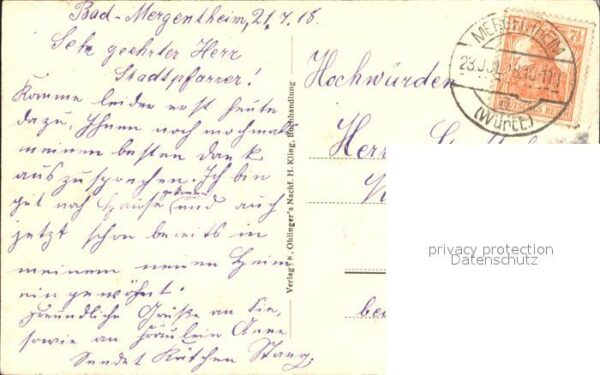 Bad-Mergentheim, 21.7.18.
Sehr geehrter Herr
Stadtpfarrer!
Komme leider erst heute
dazu, Ihnen noch nochmals
meinen besten Dank
auszusprechen. Ich bin
gut nach Hause gekommen und auch
jetzt schon bereits in
meinem neuen Heim
eingewöhnt.
Freundliche Grüße an Sie,
sowie an Fräulein Anne
Sendet Kätchen Stang.
Verlag F. Ohlinger's Nachf. H. Kling, Buchhandlung
Hochwürden
Herr
MERGENTHEIM
23.JUL.18.10-11
(Württ.)
7½
DEUTSCHES REICH
privacy protection
Datenschutz